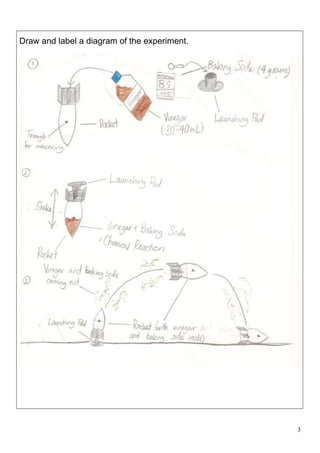 Draw and label a diagram of the experiment.
①
Baking Soda (4 grams)
B S
Vinegar
Rocket
Vinegar
(30-40mL)
Launching Pad
Trough
for measuring
②
Launching Pad
Shake
Vinegar + Baking Soda
= Chemical Reaction
Rocket
③
Vinegar and baking soda
coming out
Launching Pad
Rocket (with vinegar
and baking soda inside)
3